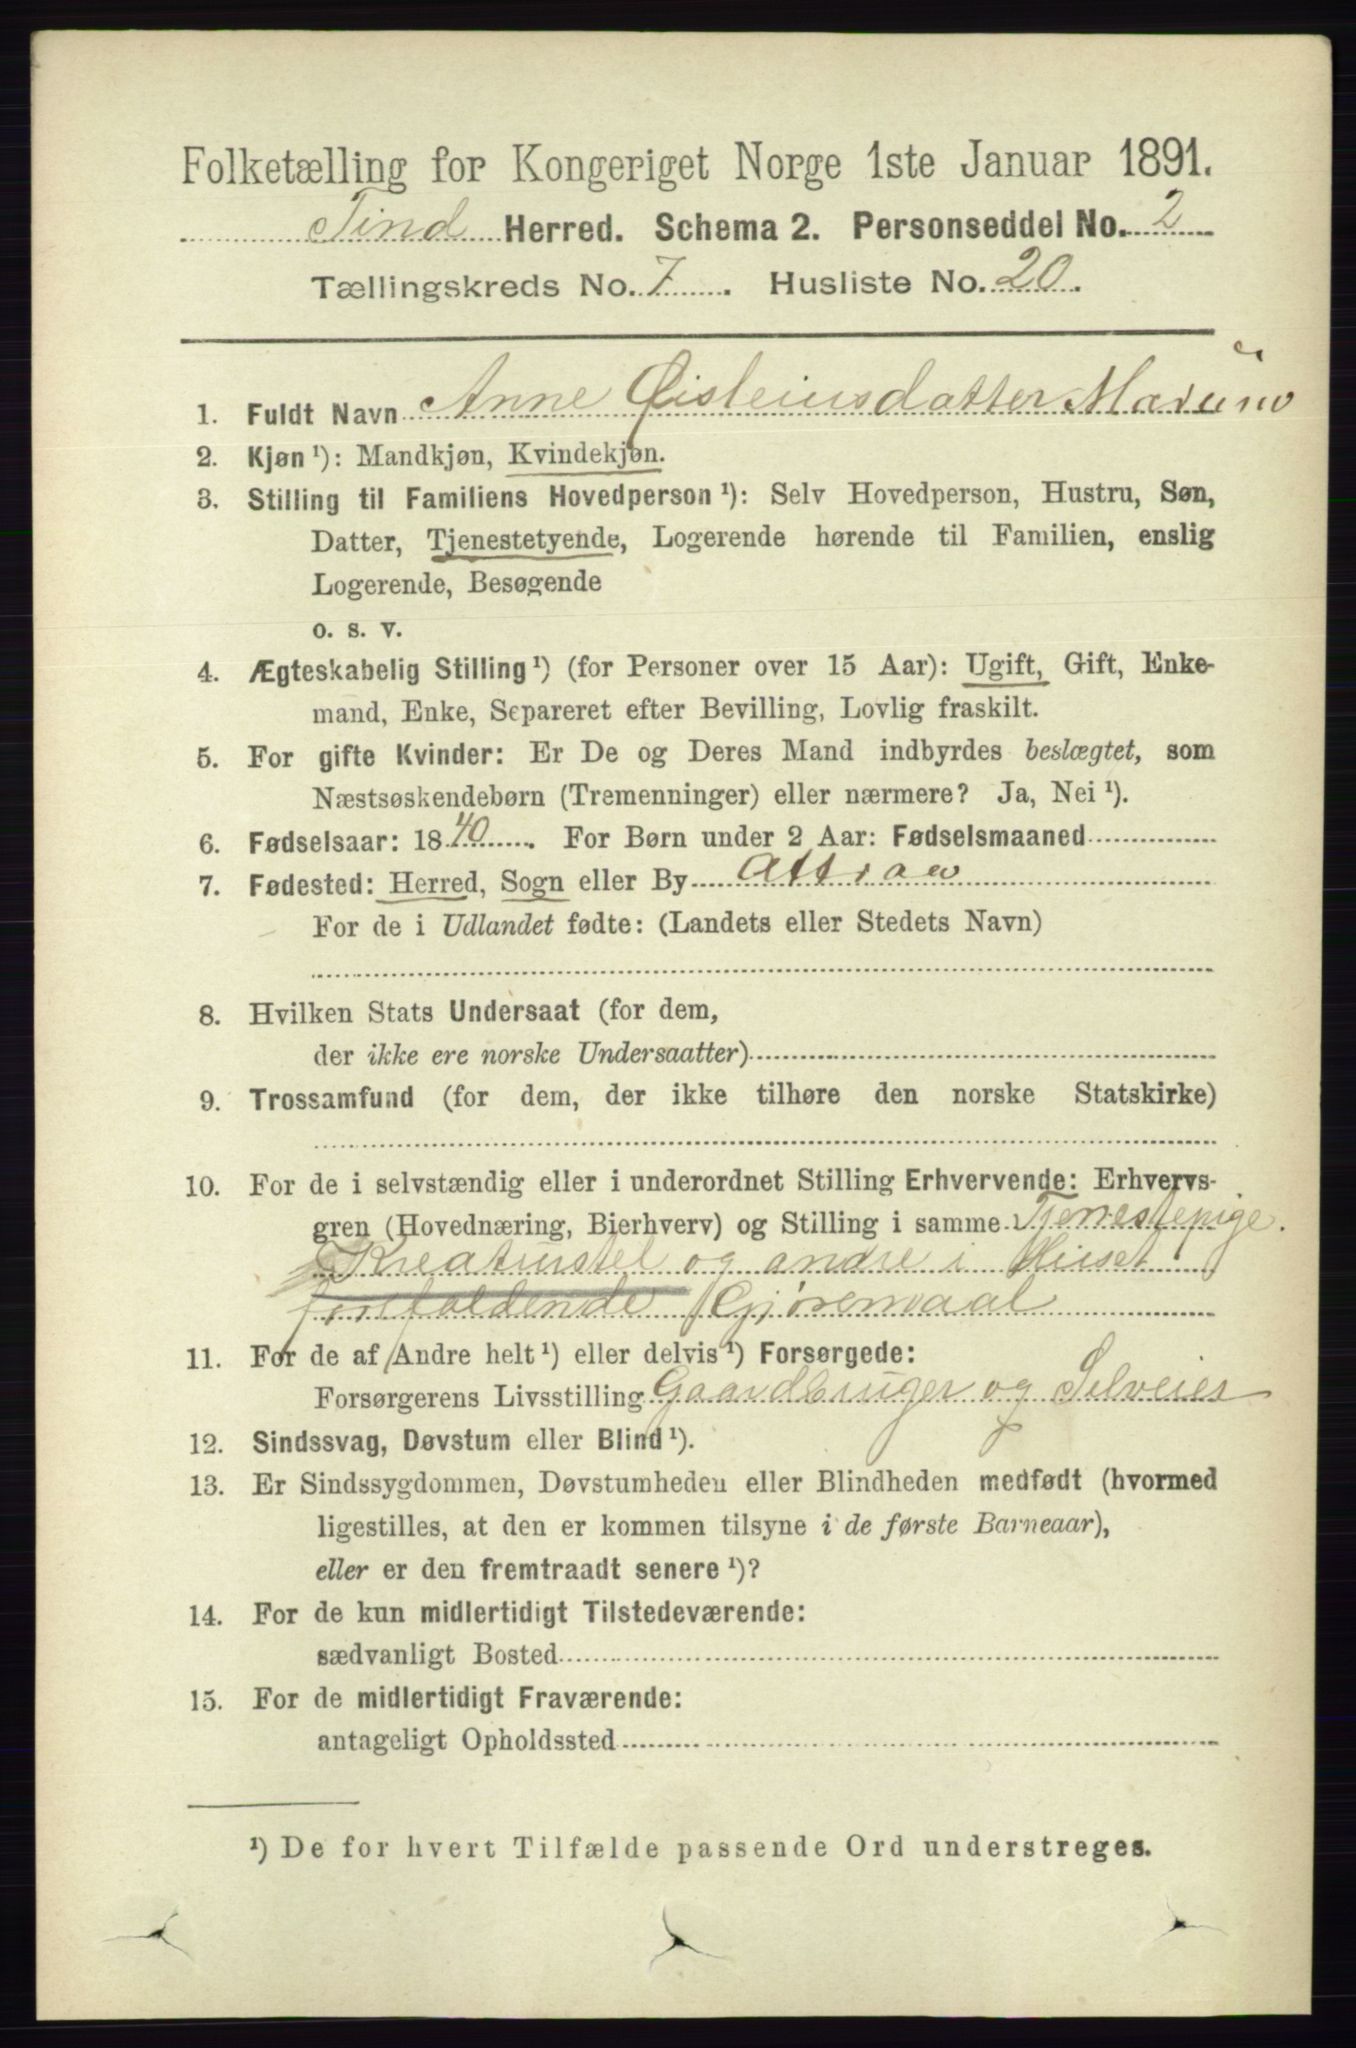 Folketælling for Kongeriget Norge 1ste Januar 1891.
Tind Herred. Schema 2. Personseddel No. 2
Tællingskreds No. 7. Husliste No. 20.
1. Fuldt Navn Anne Øisteinsdatter
2. Kjøn¹): Mandkjøn, Kvindekjøn.
3. Stilling til Familiens Hovedperson¹): Selv Hovedperson, Hustru, Søn,
Datter, Tjenestetyende, Logerende hørende til Familien, enslig
Logerende, Besøgende
o. s. v.
4. Ægteskabelig Stilling¹) (for Personer over 15 Aar): Ugift, Gift, Enke-
mand, Enke, Separeret efter Bevilling, Lovlig fraskilt.
5. For gifte Kvinder: Er De og Deres Mand indbyrdes beslægtet, som
Næstsøskendebørn (Tremenninger) eller nærmere? Ja, Nei¹).
6. Fødselsaar: 1840. For Børn under 2 Aar: Fødselsmaaned
7. Fødested: Herred, Sogn eller By Attraa
For de i Udlandet fødte: (Landets eller Stedets Navn)
8. Hvilken Stats Undersaat (for dem,
der ikke ere norske Undersaatter)
9. Trossamfund (for dem, der ikke tilhøre den norske Statskirke)
10. For de i selvstændig eller i underordnet Stilling Erhvervende: Erhvervs-
gren (Hovednæring, Bierhverv) og Stilling i samme Tjenestepige.
Kreaturstel og andre i Huset
forefaldende Gjøremaal
11. For de af Andre helt¹) eller delvis¹) Forsørgede:
Forsørgerens Livsstilling Gaardbruger og Selveier
12. Sindssvag, Døvstum eller Blind¹).
13. Er Sindssygdommen, Døvstumheden eller Blindheden medfødt (hvormed
ligestilles, at den er kommen tilsyne i de første Barneaar),
eller er den fremtraadt senere¹)?
14. For de kun midlertidigt Tilstedeværende:
sædvanligt Bosted
15. For de midlertidigt Fraværende:
antageligt Opholdssted
¹) De for hvert Tilfælde passende Ord understreges.